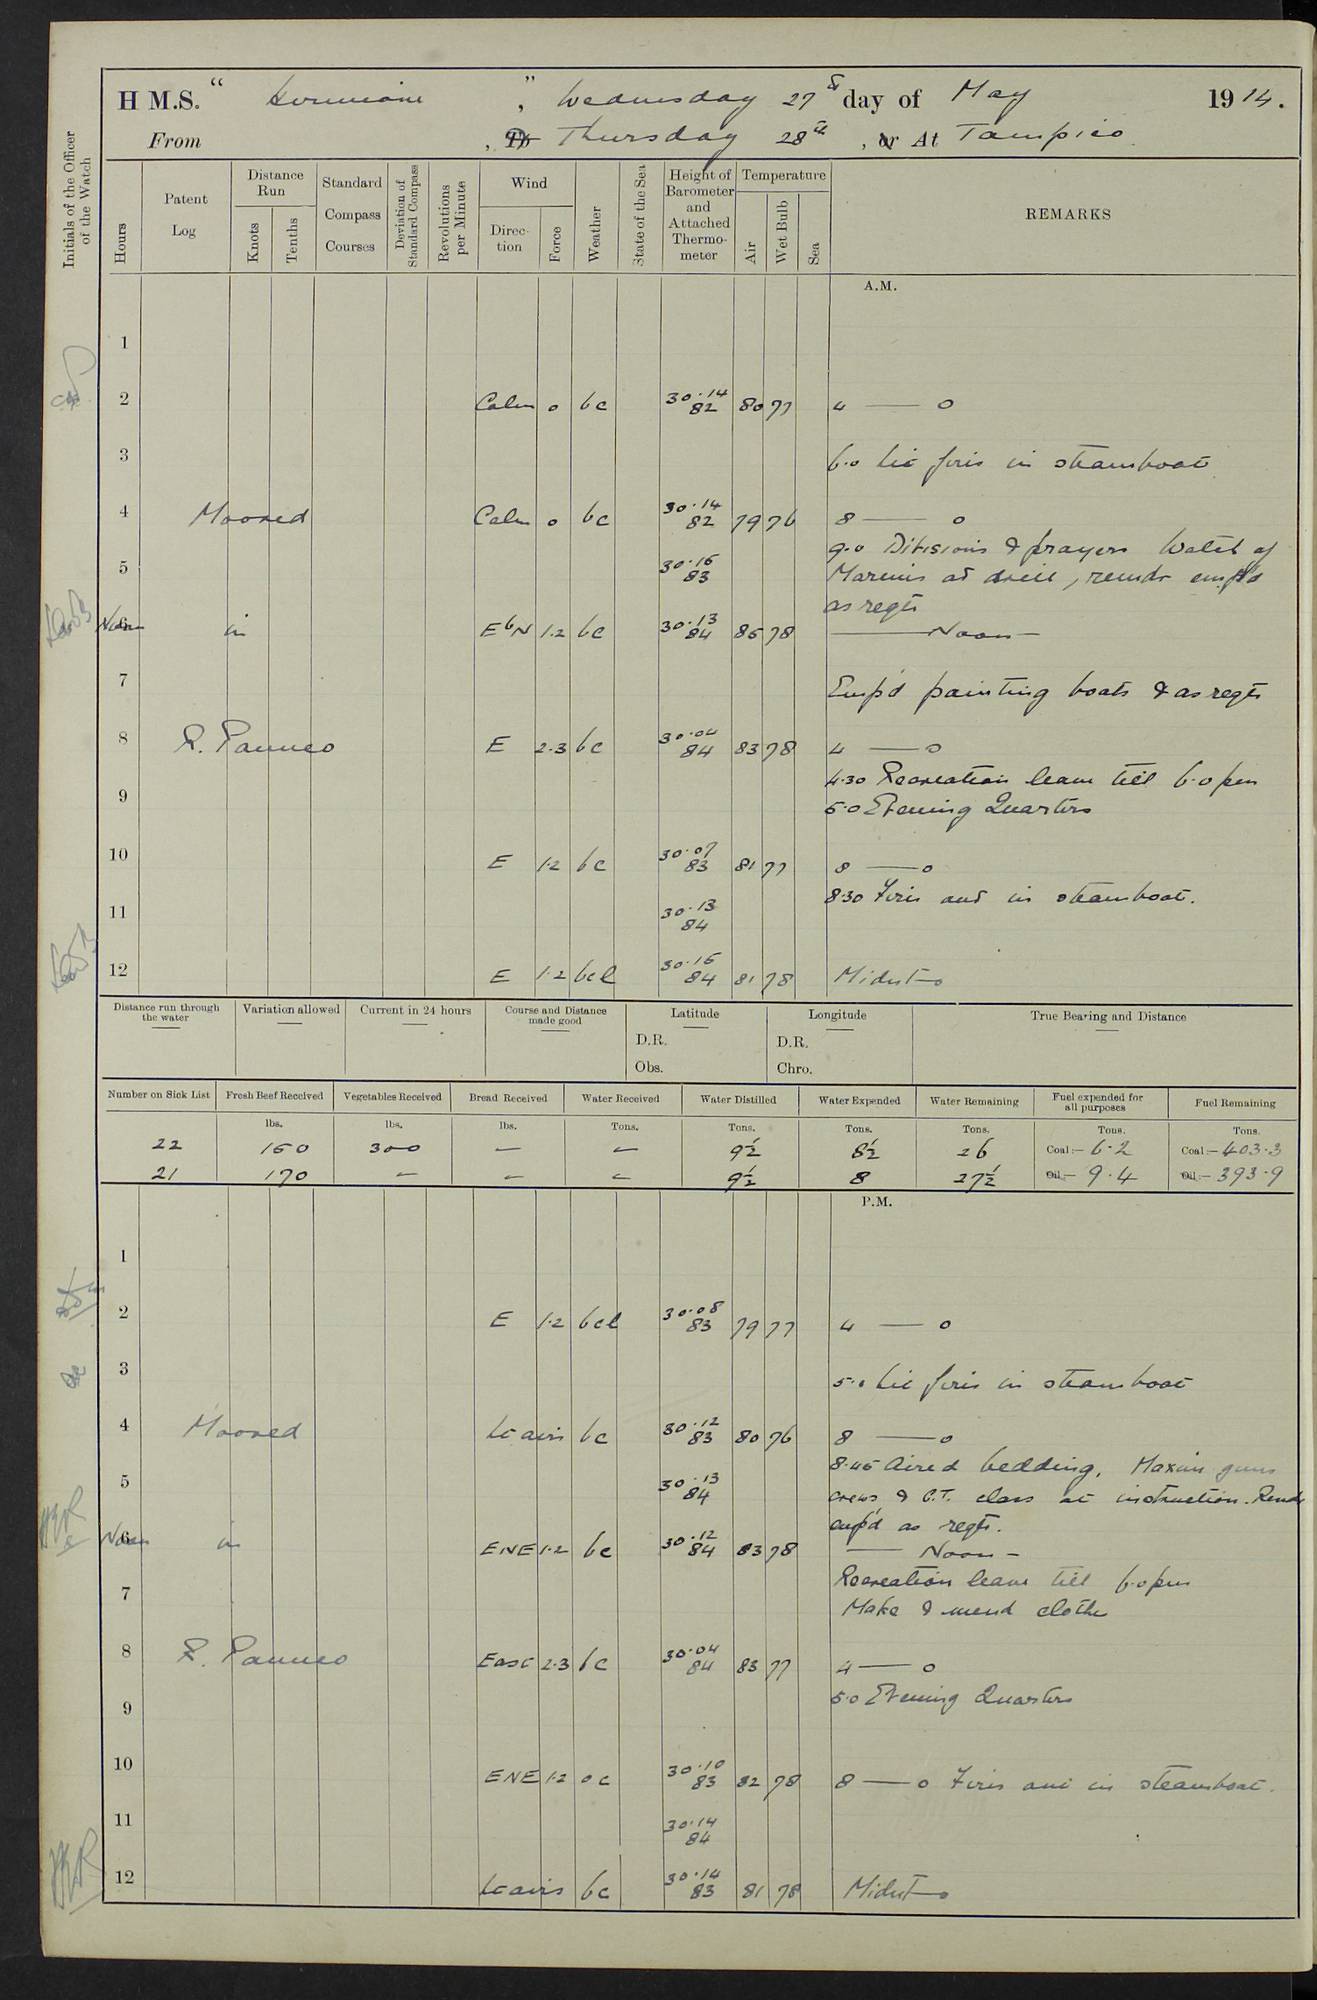 H M.S. “ Hermione ”, Wednesday 27th day of May 1914.
From , To Thursday 28th , or At Tampico
Initials of the Officer of the Watch
Hours
Patent Log
Distance Run
Knots
Tenths
Standard Compass Courses
Deviation of Standard Compass
Revolutions per Minute
Wind
Direction
Force
Weather
State of the Sea
Height of Barometer and Attached Thermometer
Temperature
Air
Wet Bulb
Sea
REMARKS
A.M.
1
2 Calm 0 bc 30.14 82 80 77 4 — 0
3 6.0 Lit fires in steamboat
4 Moored Calm 0 bc 30.14 82 79 76 8 — 0
9.0 Divisions & prayers Watch of
5 30.16 83 Marines at drill, remdr emp'd
as regts
6 Noon in EbN 1.2 bc 30.13 84 85 78 — Noon —
7 Emp'd painting boats & as regts
8 R. Panuco E 2.3 bc 30.04 84 83 78 4 — 0
4.30 Recreation leave till 6.0 pm
9 5.0 Evening Quarters
10 E 1.2 bc 30.07 83 81 77 8 — 0
8.30 Fires out in steamboat.
11 30.13 84
12 E 1.2 bcl 30.16 84 81 78 Midnt — 0
Distance run through the water
Variation allowed
Current in 24 hours
Course and Distance made good
Latitude
D.R.
Obs.
Longitude
D.R.
Chro.
True Bearing and Distance
Number on Sick List Fresh Beef Received Vegetables Received Bread Received Water Received Water Distilled Water Expended Water Remaining Fuel expended for all purposes Fuel Remaining
lbs. lbs. lbs. Tons. Tons. Tons. Tons. Tons. Tons.
22 150 300 — — 9½ 8½ 26 Coal:– 6.2 Coal:– 403.3
21 170 — — — 9½ 8 27½ Oil:– 9.4 Oil:– 393.9
P.M.
1
2 E 1.2 bcl 30.08 83 79 77 4 — 0
3 5.0 Lit fires in steamboat
4 Moored Lt airs bc 30.12 83 80 76 8 — 0
8.45 Aired bedding, Maxim guns
5 30.13 84 crews & C.T. class at instruction. Remdr
emp'd as regts.
6 Noon in ENE 1.2 bc 30.12 84 83 78 — Noon —
Recreation leave till 6.0 pm
7 Make & mend clothes
8 R. Panuco East 2.3 bc 30.04 84 83 77 4 — 0
5.0 Evening Quarters
9
10 ENE 1.2 oc 30.10 83 82 78 8 — 0 Fires out in steamboat.
11 30.14 84
12 Lt airs bc 30.14 83 81 78 Midnt — 0